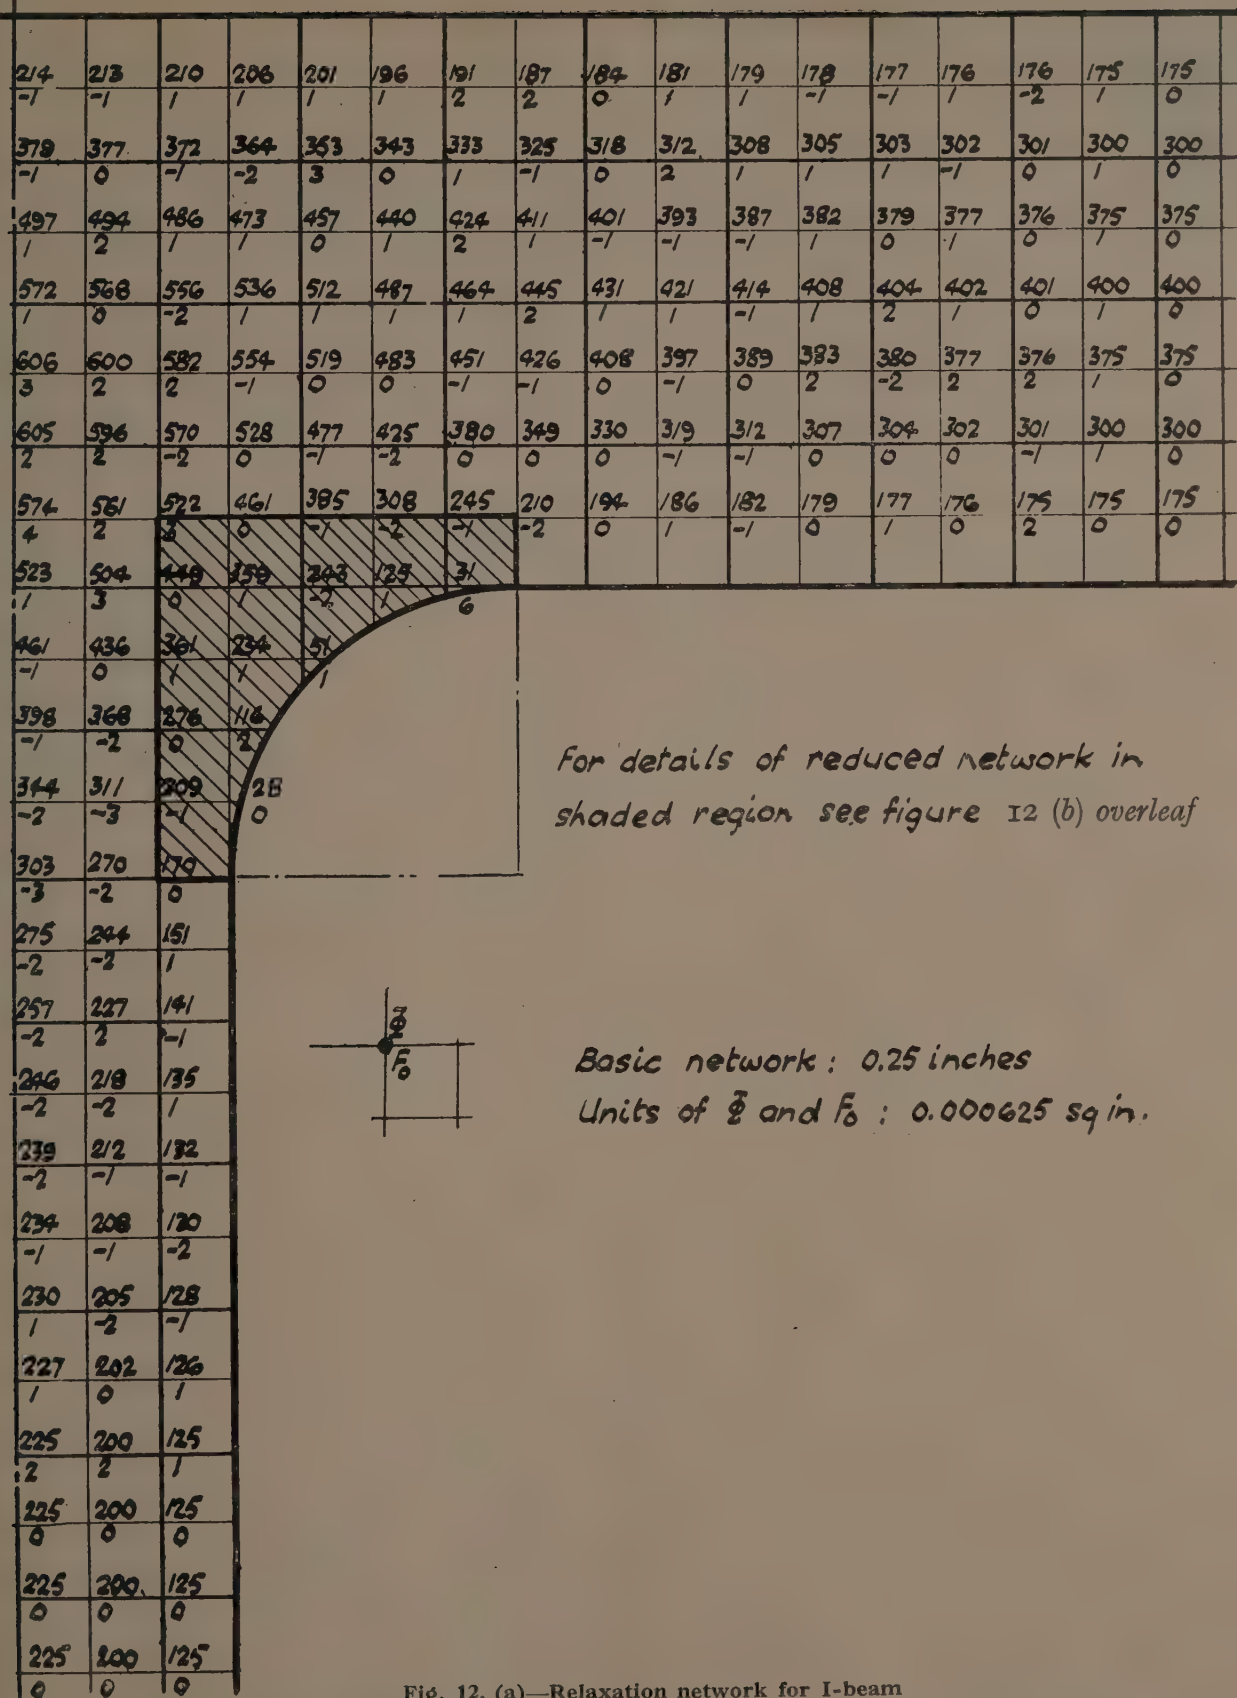 214 213 210 206 201 196 191 187 184 181 179 178 177 176 176 175 175
-1 -1 1 1 1 1 2 2 0 1 1 -1 -1 1 -2 1 0
378 377 372 364 353 343 333 325 318 312 308 305 303 302 301 300 300
-1 0 -1 -2 3 0 1 -1 0 2 1 1 1 -1 0 1 0
497 494 486 473 457 440 424 411 401 393 387 382 379 377 376 375 375
1 2 1 1 0 1 2 1 -1 -1 -1 1 0 1 0 1 0
572 568 556 536 512 487 464 445 431 421 414 408 404 402 401 400 400
1 0 -2 1 1 1 1 2 1 1 -1 1 2 1 0 1 0
606 600 582 554 519 483 451 426 408 397 389 383 380 377 376 375 375
3 2 2 -1 0 0 -1 -1 0 -1 0 2 -2 2 2 1 0
605 596 570 528 477 425 380 349 330 319 312 307 304 302 301 300 300
2 2 -2 0 -1 -2 0 0 0 -1 -1 0 0 0 -1 1 0
574 561 522 461 385 308 245 210 194 186 182 179 177 176 175 175 175
4 2 0 -1 -2 -1 -2 0 1 -1 0 1 0 2 0 0
523 504 243 125 31
1 3 0 1 -2 1 6
461 436 361 234 51
-1 0 1 1 1
398 368 276 116
-1 -2 0 2
344 311 209 28
-2 -3 -1 0
303 270 170
-3 -2 0
275 244 151
-2 -2 1
257 227 141
-2 2 -1
246 218 135
-2 -2 1
239 212 132
-2 -1 -1
234 208 130
-1 -1 -2
230 205 128
1 -2 -1
227 202 126
1 0 1
225 200 125
2 2 1
225 200 125
0 0 0
225 200 125
0 0 0
225 200 125
0 0 0
For details of reduced network in
shaded region see figure 12 (b) overleaf
Φ
F₀
Basic network : 0.25 inches
Units of Φ and F₀ : 0.000625 sq in.
Fig. 12. (a)—Relaxation network for I-beam